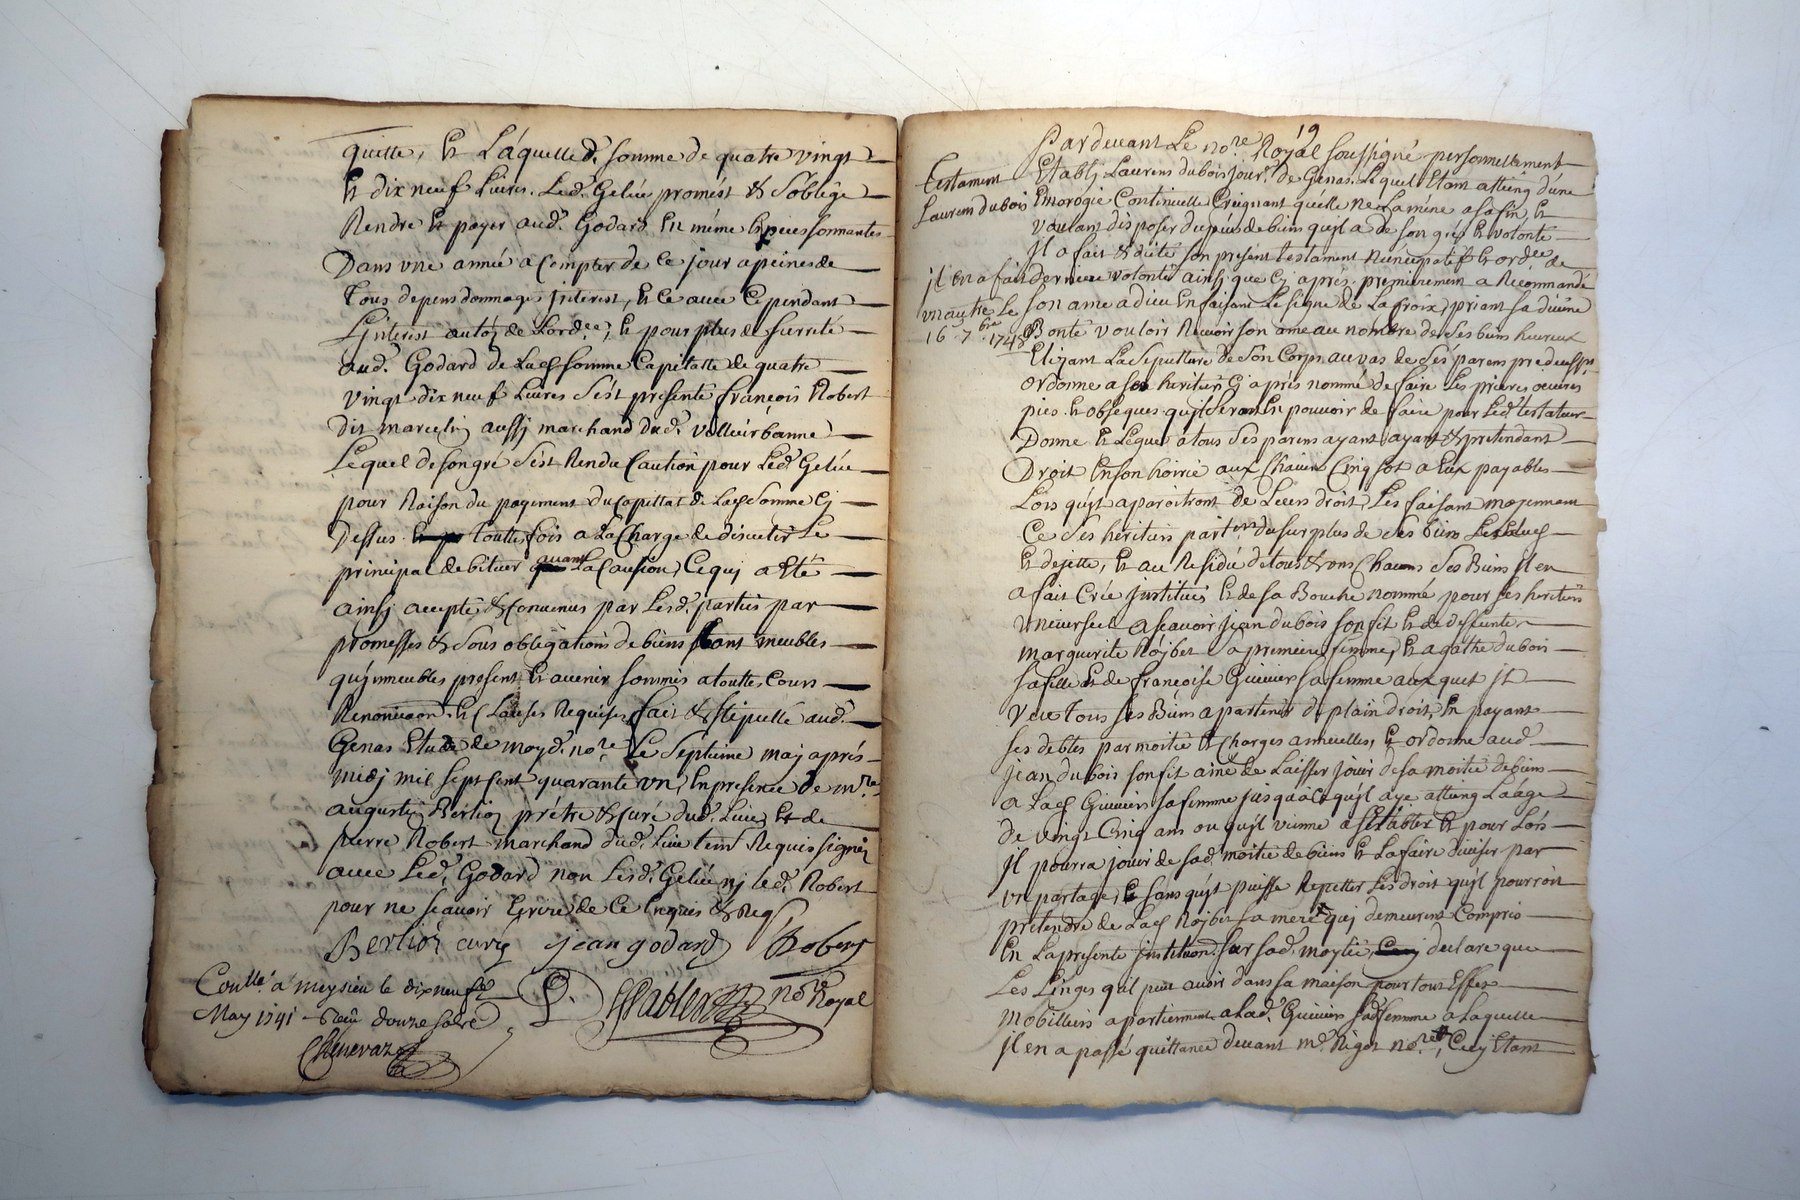 quitte, et Laquelle d. somme de quatre vingt
Et dix neuf Livres. Led. Geliu promést & s'oblige
Rendre Et payer aud. Godard En méme Especes sonnantes
Dans une année a Compter de Ce jour apeines de
Tous depens dommages Interest, Et Ce avec Cependant
L'interest de L'ordce, Et pour plus de surreté
aud. Godard de Lad somme Capitalle de quatre
vingt dix neuf Livres s'ést presenté françois Robert
dit marcelin aussj marchand dud. Villeurbanne
Lequel de son gré s'ést Rendu Caution pour Led. Geliu
pour Raison du payement du Capittal de Lad somme Cj
Dessus touttes fois a La Charge de discutér Le
principal debiteur quant La Caution, Ce quj a Eté
ainsj accepté & Convenus par Lesd. parties par
promesses & sous obligations de biens tant meubles
qu'jmmeubles present Et avenir soumis a touttes Cours
Renonciaon Et Clauses Requises fait & stipullé aud.
Genas Etude de moyd. nore Le séptieme maj aprés
midj mil sept Cent quarante un, En presence de mre
augustin Berlioz prétre & Curé dud. Lieu, Et de
pierre Robert marchand dud. Lieu tem Requis signéz
avec Led. Godard non Lesd. Geliu nj led. Robert
pour ne scavoir Ecrire de Ce Enquis & Req
Berlioz curé jean godard Robert
Sablier nore Royal
Coulle a meysieu le dixneuf
May 1741 Reçu douze sols
Chenevaz
19
Pardevant Le nore Royal soussigné personnellement
Etablj Laurens dubois jour. de Genas. Lequel Etant atteing d'une
Emorogie Continuelle Creignant quelle ne La méne a sa fin, Et
voulant disposer du peu de biens qu'jl a de son gré Et volonté
Il a fait & dicté son présent testament Nuncupatif Et ordce de
Derniere volonté ainsj que Cj aprés. premierement a Recommandé
son ame a dieu En faisant Le signe de La Croix, priant sa divine
Bonté vouloir Recevoir son ame au nombre de ses biens heureux
Elizant La sepulture de son Corps au vas de ses parens
ordonne a ses heritiers Cj aprés nommé de faire Les prieres oeuvres
pies. Et obseques qu'jl seront En pouvoir de faire pour Led. testateur
Donne Et Legue a tous ses parens ayant ayant & pretendant
Droit En son hoirie aux Chacun Cinq sol a Eux payables
Lors qu'jl aparoitront de Leurs droit, Les faisant mojennant
Ce ses heritiers partrs du surplus de ses biens
Et dejette, Et au Residu de tous & uns Chacuns ses Biens jl en
a fait Crée jnstitués Et de sa Bouche nommé pour ses heritiers
universels a scavoir jean dubois son fil Et de deffunte
marguerite Rojbet sa premiere femme, Et agathe dubois
sa fille Et de françoise Guivier sa femme aux quel jl
veu tous ses Biens apartenir de plain droit, En payant
ses debtes par moitié Et Charges annuelles, Et ordonne aud
jean dubois son fil ainé de Laisser jouir de sa moitié de biens
a Lad Guivier sa femme jusqu'a Ce qu'jl aye atteing L'aage
de vingt Cinq ans ou qu'jl vienne a s'établir Et pour Lors
jl pourra jouir de sad. moitié de biens Et La faire diviser par
un partage, Et sans qu'jl puisse Repetter Les droit qu'jl pourroit
prétendre de Lad Rojbet sa mere quj demeurent Compris
En La presente jnstitution sur sad. moytié, declare que
Les Linges qu'jl peut avoir dans sa maison pour tout Effet
mobilliers apartiennent a Lad. Guivier sad femme a Laquelle
jl en a passé quittance devant me. Rigot nore, Cecj Etant
testament
Laurens dubois
jl en a fait
un autre Le
16 7bre 1748